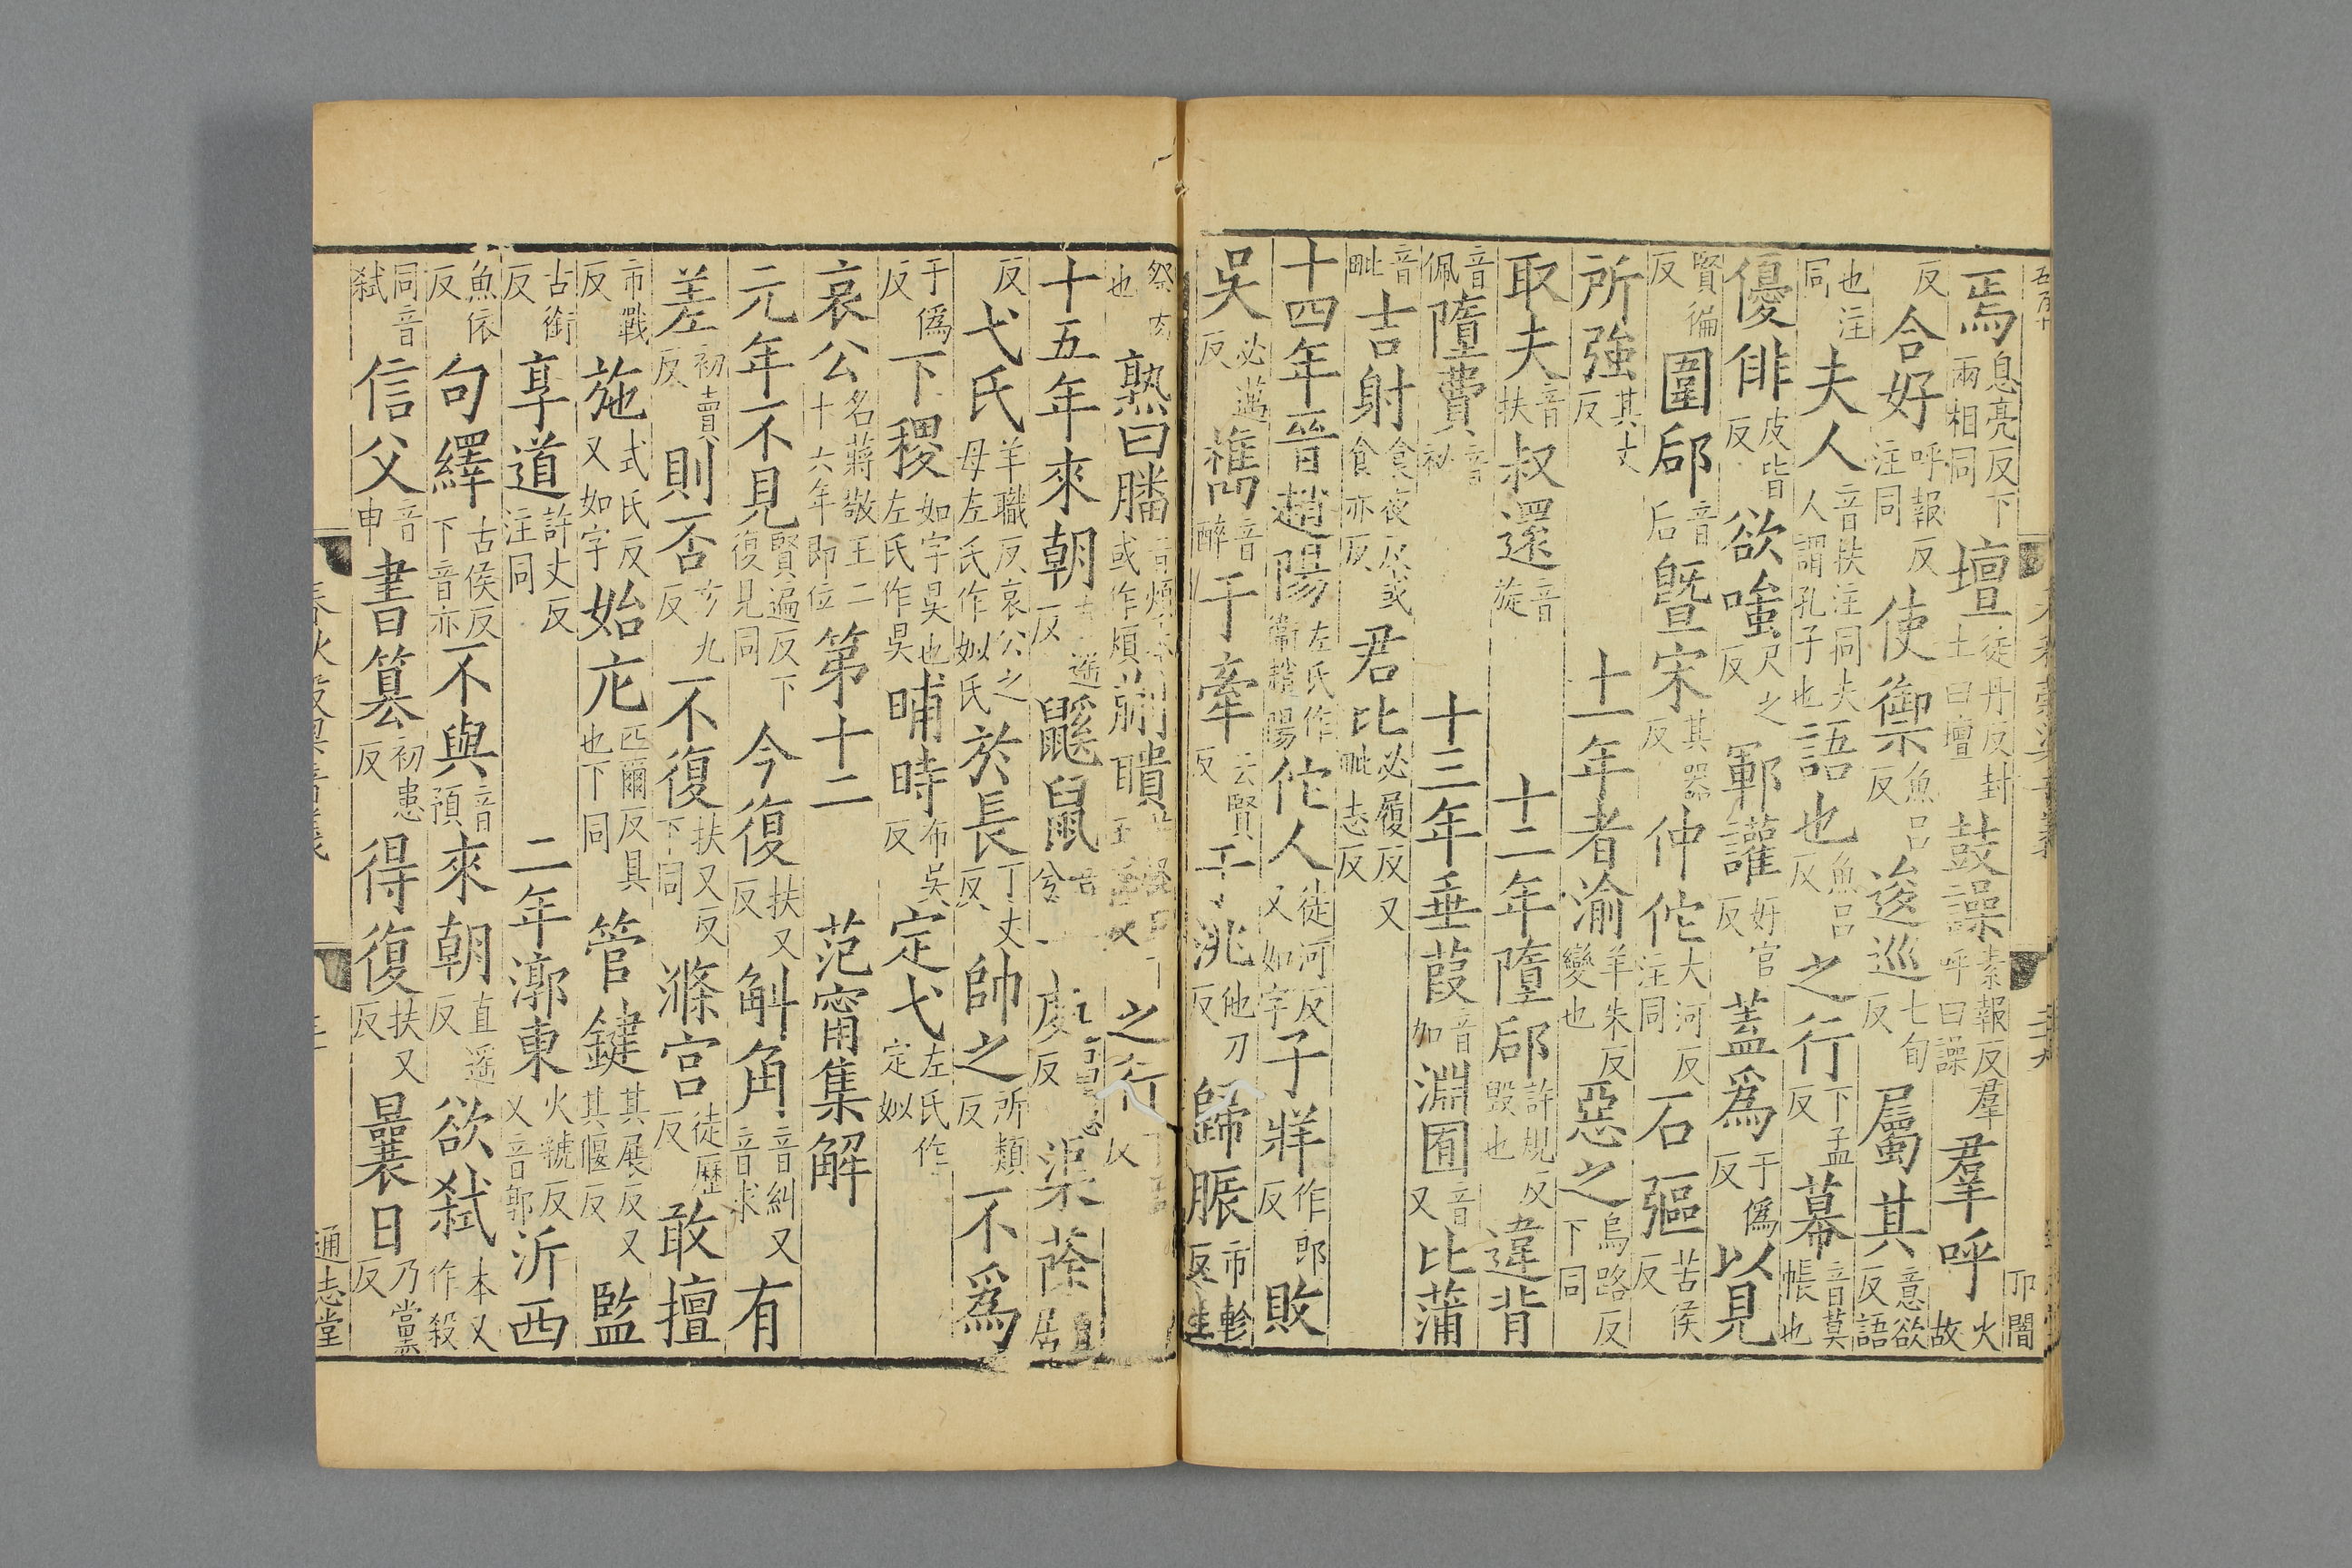 卬間
焉息亮反下兩相同壇徒丹反封土曰壇鼓譟素報反羣呼曰譟羣呼火故
反合好呼報反注同使御魚吕反逡巡七旬反屬其意欲反語
也注同夫人音扶注同夫人謂孔子也語也魚吕反之行下孟反幕音莫帳也
優俳皮皆反欲嗤尺之反鄆讙好官反蓋爲于僞反以見
賢徧反圍郈音后曁宋其器反仲佗大河反注同石彄苦侯反
所強其丈反十一年者渝羊朱反變也惡之烏路反下同
取夫音扶叔還音旋十二年墮郈許規反毀也違背
音佩墮費音祕十三年垂葭音加淵囿音又比蒲
音毗吉射食夜反或食亦反君比必履反又毗志反
十四年晉趙陽左氏作衞趙陽佗人徒河反又如字子牂作郎反敗
吳必邁反檇音醉于牽去賢反于洮他刀反歸脤市軫反生
祭肉也熟曰膰音煩或作煩蒯聵之行
十五年來朝直遥反鼷鼠音兮渠蒢直居
反弋氏羊職反哀公之母左氏作姒氏於長丁丈反帥之所類反不爲
于僞反下稷如字昃也左氏作昃晡時布吳反定弋左氏作定姒
哀公名蔣敬王二十六年即位第十二范甯集解
元年不見賢遍反下復見同今復扶又反斛角音糾又音求有
差初賣反則否方九反不復扶又反下同滌宮徒歷反敢擅
市戰反施式氏反又如字始庀匹爾反具也下同管鍵其展反又其偃反監
古銜反享道許丈反注同二年漷東火虢反又音郭沂西
魚依反句繹古侯反下音亦不與音預來朝直遥反欲弑本又作殺
同音弑信父音申書簒初患反得復扶又反曩日乃黨反
通志堂